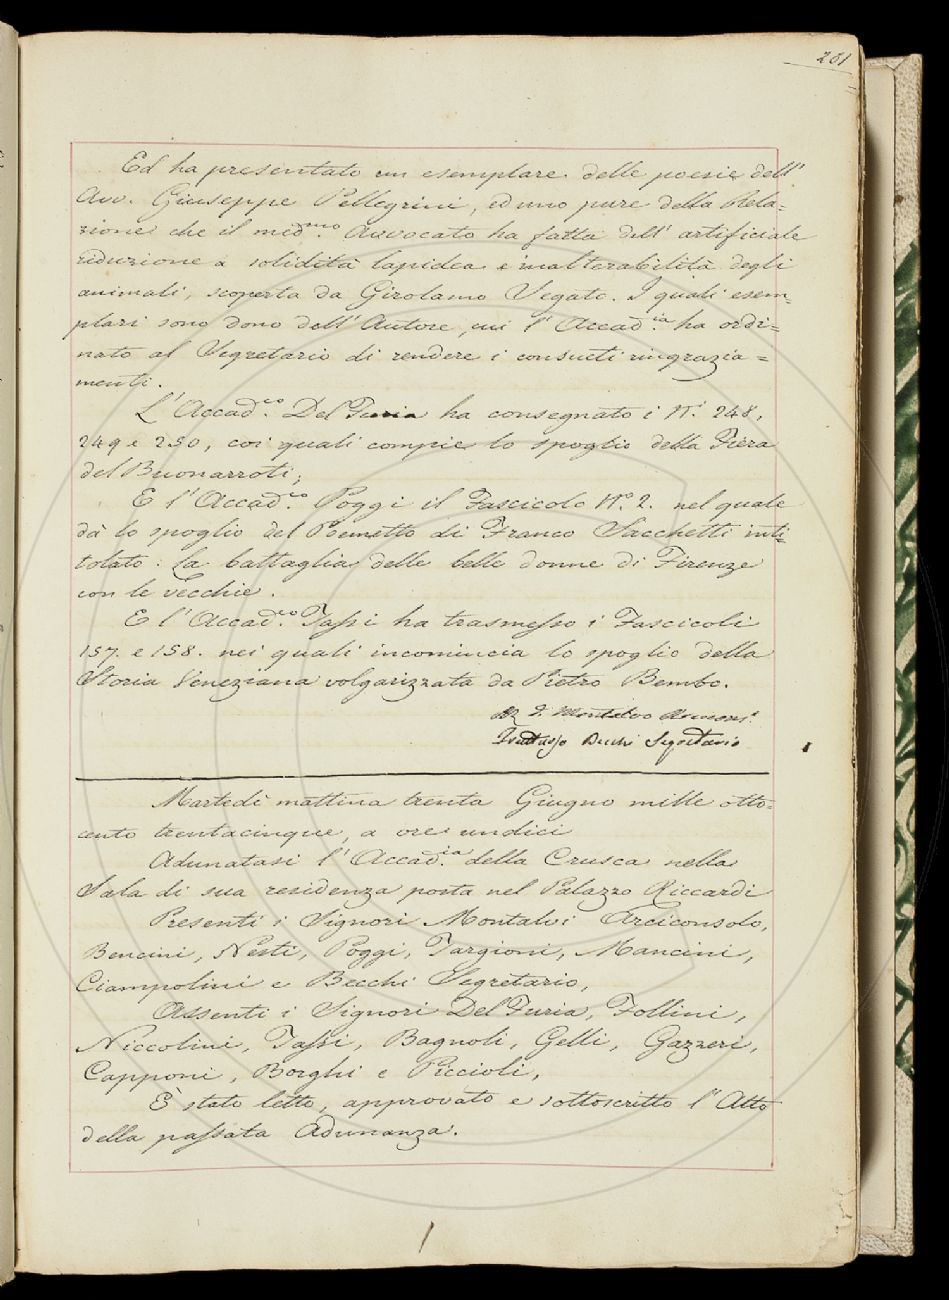 261
Ed ha presentato un esemplare delle poesie dell'
Avv. Giuseppe Pellegrini, ed uno pure della Rela=
zione che il med.mo Avvocato ha fatta dell' artificiale
riduzione a solidità lapidea e inalterabilità degli
animali, scoperta da Girolamo Segato. I quali esem=
plari sono dono dell' Autore, cui l' Accad.ia ha ordi=
nato al Segretario di rendere i consueti ringrazia=
menti.
L' Accad.co Del Furia ha consegnato i N.i 248,
249 e 250, coi quali compie lo spoglio della Fiera
del Buonarroti;
E l' Accad.co Poggi il Fascicolo N.o 2. nel quale
dà lo spoglio del Poemetto di Franco Sacchetti inti=
tolato: La battaglia delle belle donne di Firenze
con le vecchie.
E l' Accad.co Tassi ha trasmesso i Fascicoli
157. e 158. nei quali incomincia lo spoglio della
Storia Veneziana volgarizzata da Pietro Bembo.
Montalvo
Becchi Segretario
Martedì mattina trenta Giugno mille otto=
cento trentacinque, a ore undici
Adunatasi l' Accad.ia della Crusca nella
Sala di sua residenza posta nel Palazzo Riccardi
Presenti i Signori Montalvi Arciconsolo,
Bencini, Nesti, Poggi, Targioni, Mancini,
Ciampolini e Becchi Segretario,
Assenti i Signori Del Furia, Follini,
Niccolini, Tassi, Bagnoli, Gelli, Gazzeri,
Capponi, Borghi e Piccioli,
È stato letto, approvato e sottoscritto l' Atto
della passata Adunanza.